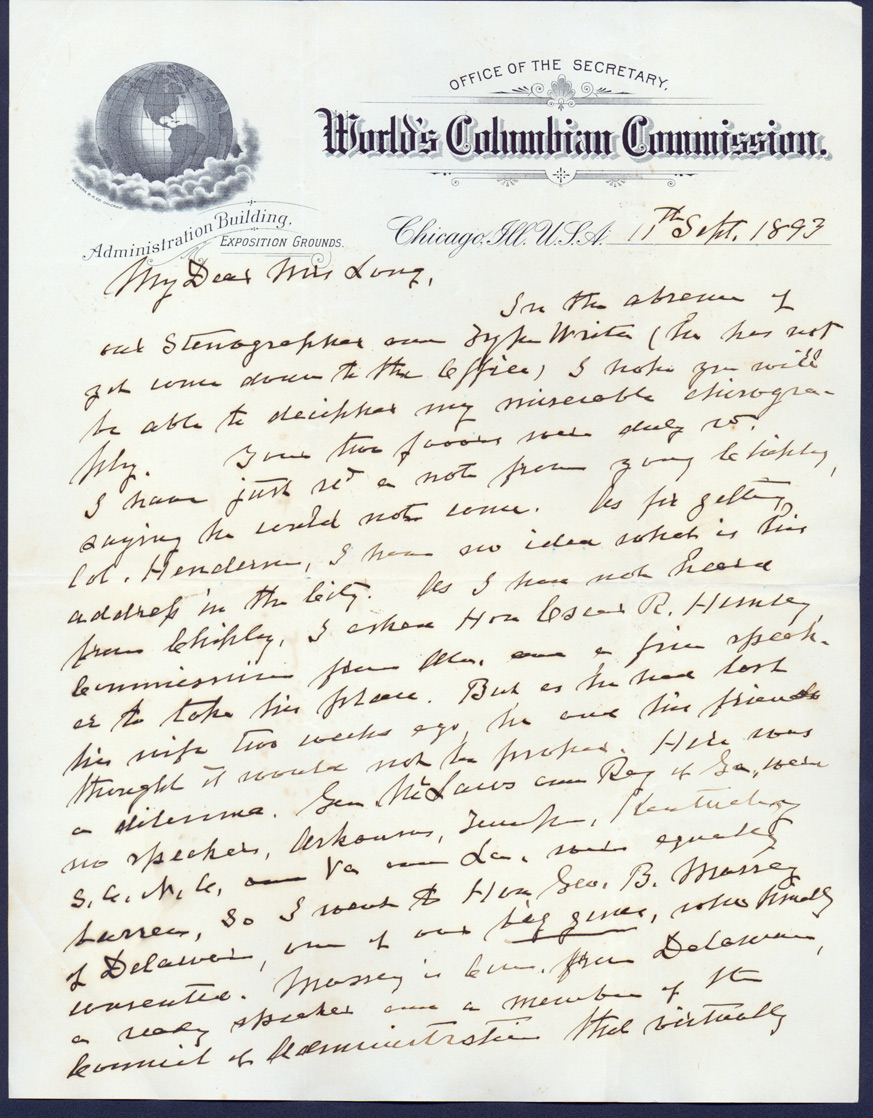 OFFICE OF THE SECRETARY.
World's Columbian Commission.
Administration Building.
EXPOSITION GROUNDS.
Chicago, Ill. U.S.A. 11th Sept. 1893
My Dear Mrs Long,
In the absence of
our Stenographer and Type Writer (he has not
yet come down to the Office) I hope you will
be able to decipher my miserable chirogra-
phy. Your two favors were duly rd.
I have just rd a note from young Chipley,
saying he could not come. As for getting
Col. Henderson, I have no idea what is his
address in the City. As I have not heard
from Chipley, I asked Hon Oscar R. Hundley,
Commissioner from Ala. and a fine speak-
er to take his place. But as he had lost
his wife two weeks ago, he and his friends
thought it would not be proper. Here was
a dilemma. Gen McLaws and Rey of Ga, were
no speakers, Arkansas, Tenn, Kentucky
S.C. N.C, and Va and La, were equally
barren, So I went to Hon Geo. B. Massey
of Delaware, one of our big guns, who kindly
consented. Massey is Com. from Delaware,
a ready speaker and a member of the
Council of Administration that virtually